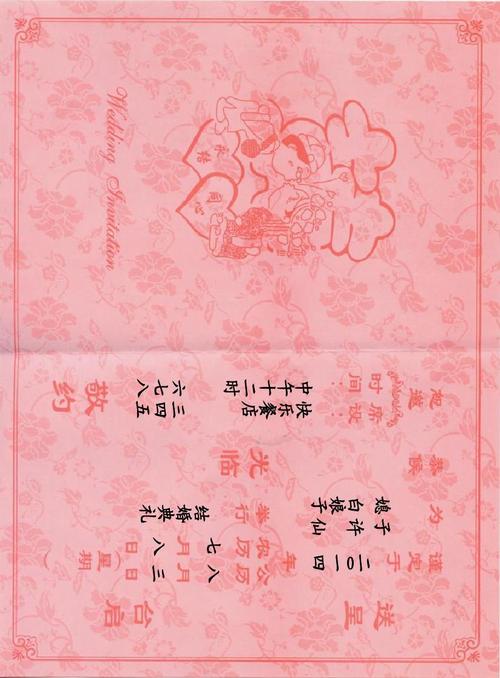 Wedding Invitation
永结
同心
送呈
台启
谨定于
二〇一四
年
公历
八月三日(星期
农历
七月八日
为
子许仙
媳白娘子
举行
结婚典礼
恭候
光临
席设:
快乐餐店
时间:
中午十二时
恕邀
三四五
六七八
敬约